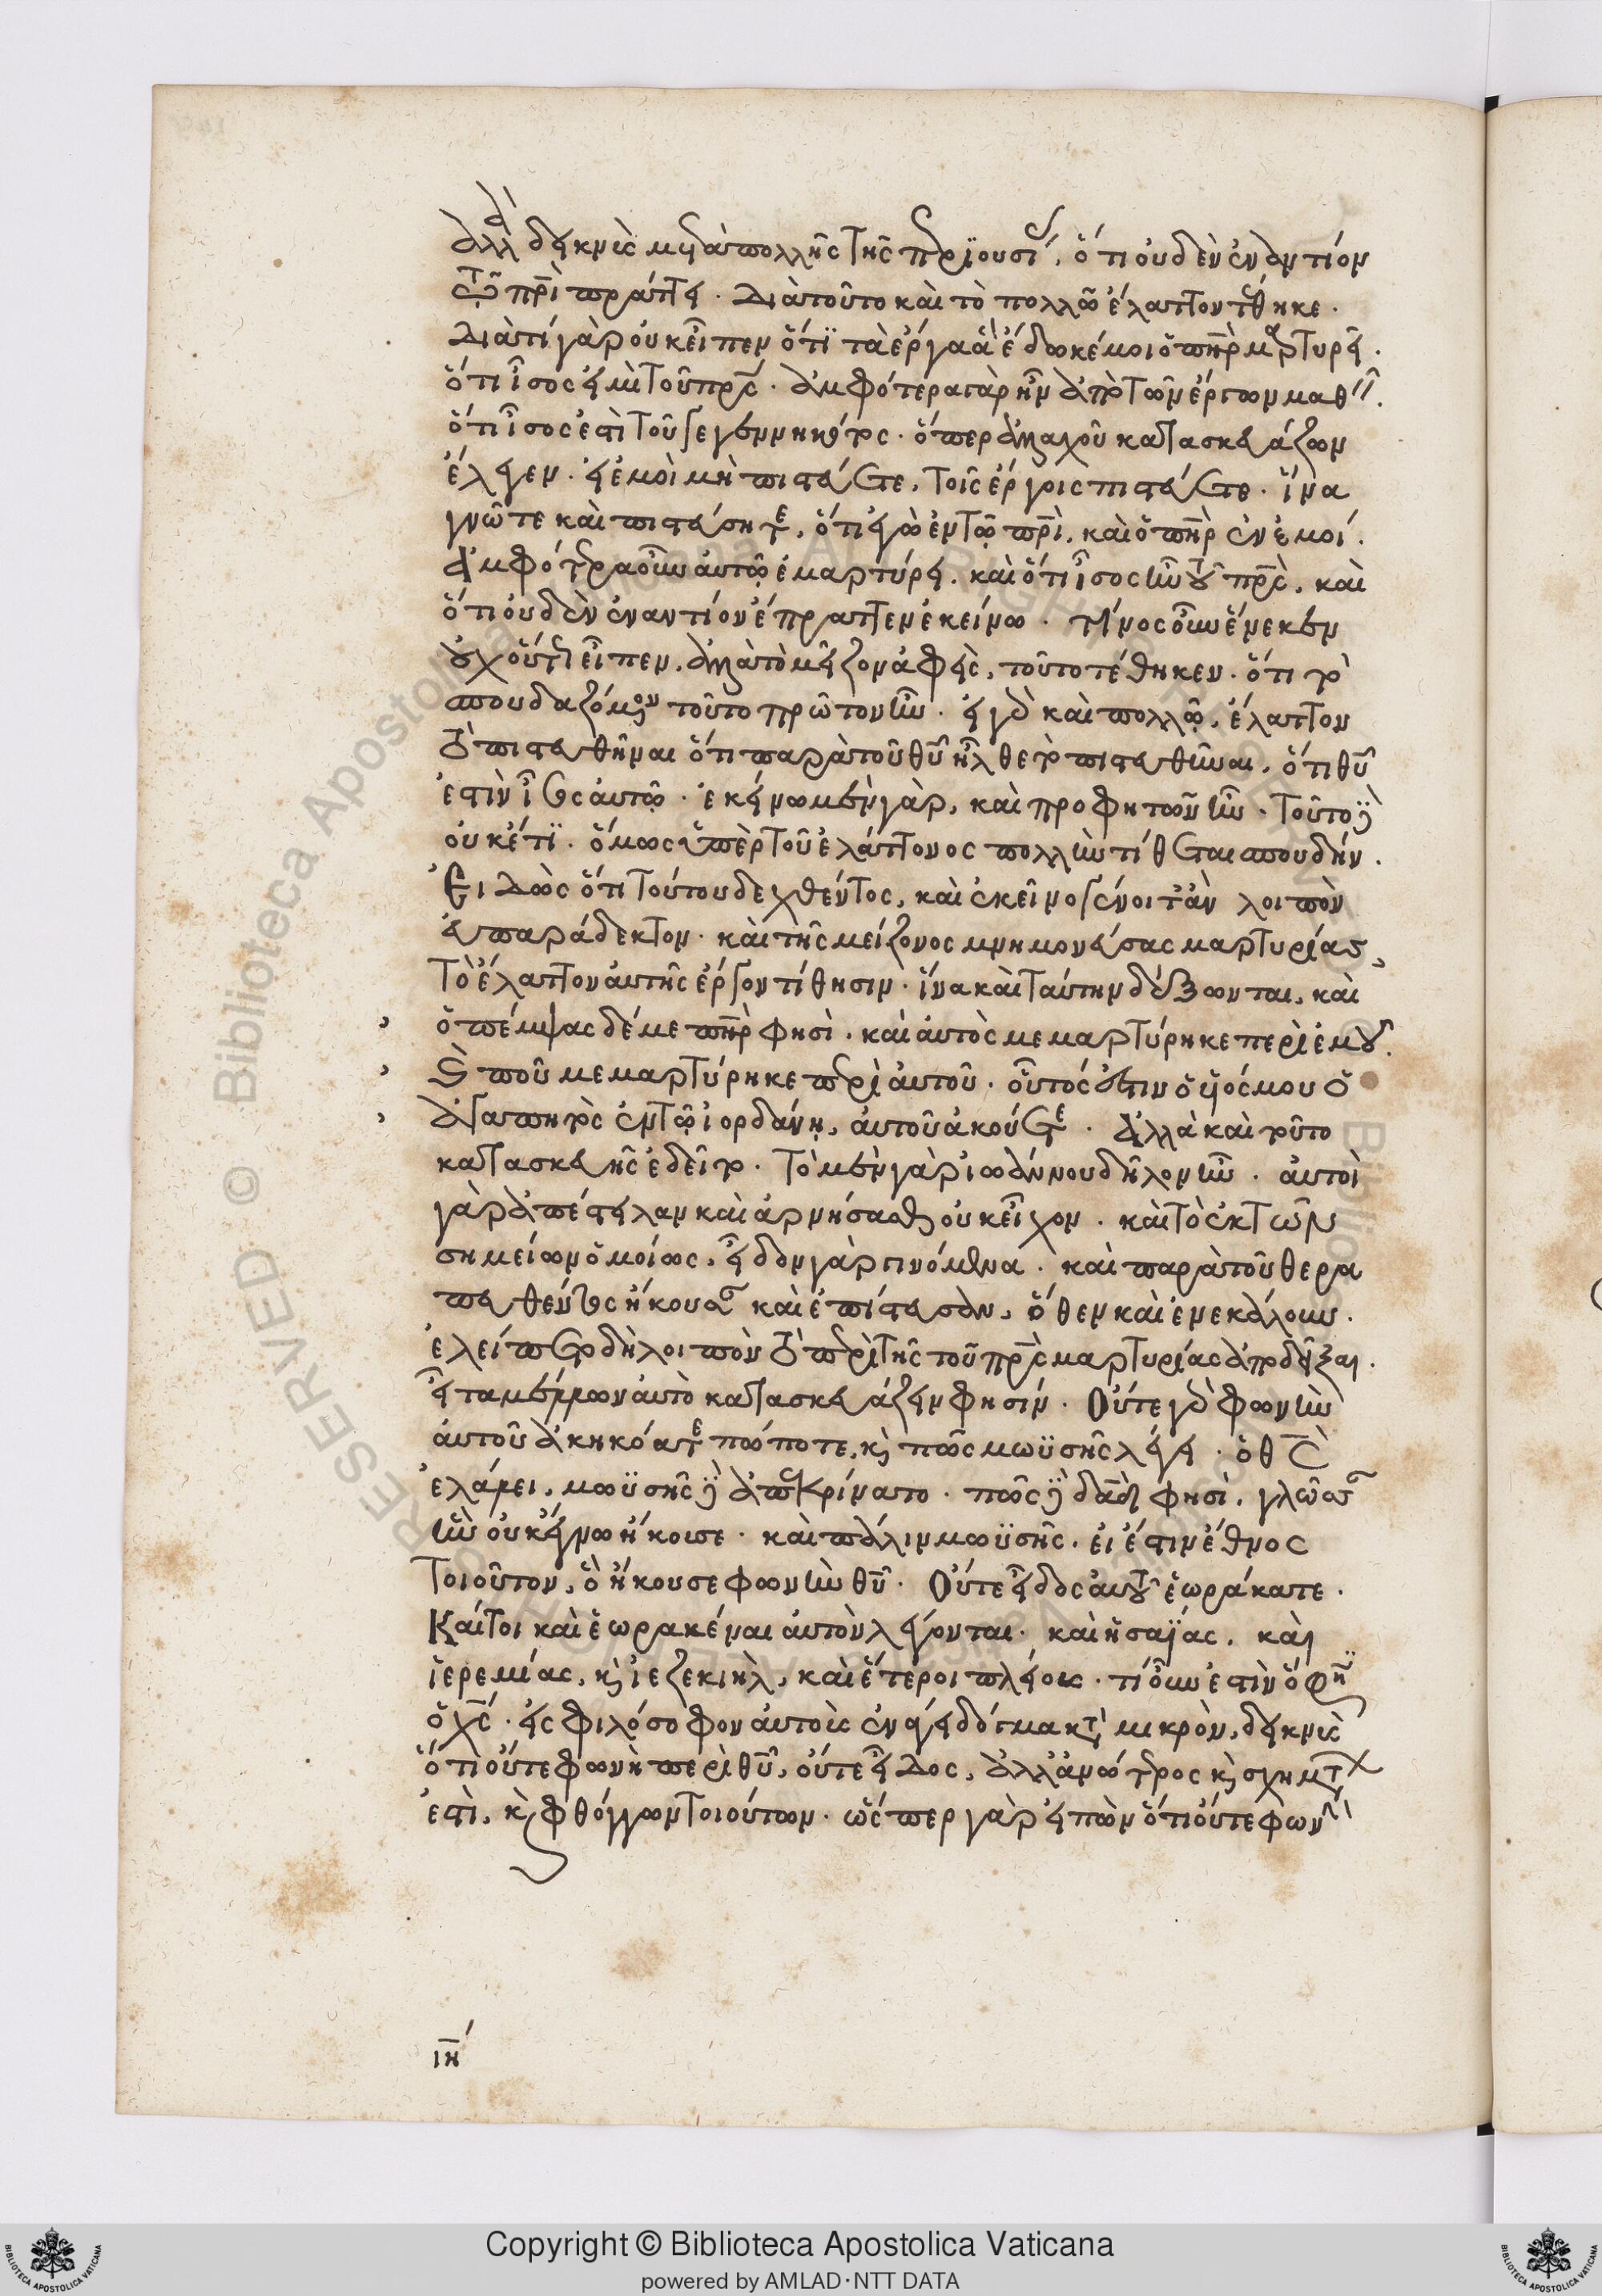 ἀλλὰ δεικνὺς μετὰ πολλῆς τῆς περιουσίας, ὅτι οὐδὲν ἐναντίον
τῷ πρὶ πράττει. Διὰ τοῦτο καὶ τὸ πολλῶ ἔλαττον τέθηκε.
Διατί γὰρ οὐκ εἶπεν ὅτι τὰ ἔργα ἃ ἔδωκέ μοι ὁ πὴρ μαρτυρεῖ.
ὅτι ἶσος εἰμὶ τοῦ πρς. ἀμφότερα γὰρ ἦν ἀπὸ τῶν ἔργων μαθεῖν.
ὅτι ἶσος ἐστὶ τοῦ γεγεννηκότος. ὅπερ ἀλλαχοῦ κατασκευάζων
ἔλεγεν. εἰ ἐμοὶ μὴ πιστεύετε, τοῖς ἔργοις πιστεύετε. ἵνα
γνῶτε καὶ πιστεύσητε, ὅτι ἐγὼ ἐν τῷ πρὶ, καὶ ὁ πὴρ ἐν ἐμοί.
Ἀμφότερα οὖν αὐτῷ ἐμαρτύρει. καὶ ὅτι ἶσος ἦν τοῦ πρς, καὶ
ὅτι οὐδὲν ἐναντίον ἔπραττεν ἐκείνω. τίνος οὖν ἕνεκεν
οὐχ οὕτως εἶπεν, ἀλλὰ τὸ μεῖζον ἀφεὶς, τοῦτο τέθηκεν. ὅτι τὸ
σπουδαζόμενον τοῦτο πρῶτον ἦν. εἰ γὰρ καὶ πολλῷ, ἔλαττον
τὸ πιστευθῆναι ὅτι παρὰ τοῦ θυ ἦλθε τοῦ πιστευθῆναι, ὅτι θυ
ἐστὶν ἶσος αὐτῷ. ἐκεῖνο μὲν γὰρ, καὶ προφητῶν ἦν. τοῦτο δὲ
οὐκέτι. ὅμως ὑπὲρ τοῦ ἐλάττονος πολλὴν τίθεται σπουδήν.
Εἰδὼς ὅτι τούτου δεχθέντος, καὶ ἐκεῖνο γένοιτ' ἂν λοιπὸν
εὐπαράδεκτον. καὶ τῆς μείζονος μνημονεύσας μαρτυρίας,
τὸ ἔλαττον αὐτῆς ἔργον τίθησιν. ἵνα καὶ ταύτην δέξωνται, καὶ
ὁ πέμψας δέ με πὴρ φησὶ. καὶ αὐτὸς μεμαρτύρηκε περὶ ἐμοῦ.
καὶ ποῦ μεμαρτύρηκε περὶ αὐτοῦ. οὗτός ἐστιν ὁ υἱός μου ὁ
ἀγαπητὸς ἐν τῷ ἰορδάνῃ, αὐτοῦ ἀκούετε. Ἀλλὰ καὶ τοῦτο
κατασκευῆς ἐδεῖτο. τὸ μὲν γὰρ ἰωάννου δῆλον ἦν. αὐτοὶ
γὰρ ἀπέστειλαν καὶ ἀρνήσασθαι οὐκ εἶχον. καὶ τὸ ἐκ τῶν
σημείων ὁμοίως, εἶδον γὰρ γινόμενα. καὶ παρὰ τοῦ θερα
πευθέντος ἤκουσαν καὶ ἐπίστευσαν, ὅθεν καὶ ἐνεκάλουν.
ἐλείπετο δὴ λοιπὸν τὸ περὶ τῆς τοῦ πρς μαρτυρίας ἀποδεῖξαι.
εἶτα μέλλων αὐτὸ κατασκευάζειν φησίν. Οὔτε γὰρ φωνὴν
αὐτοῦ ἀκηκόατε πώποτε, κὶ πῶς μωϋσῆς λέγει. ὁ θς
ἐλάλει, μωϋσῆς δὲ ἀπεκρίνατο. πῶς δὲ δαδ φησὶ, γλῶσσαν
ἣν οὐκ ἔγνω ἤκουσε. καὶ πάλιν μωϋσῆς. εἰ ἔστιν ἔθνος
τοιοῦτον, ὃ ἤκουσε φωνὴν θυ. Οὔτε εἶδος αὐτοῦ ἑωράκατε.
Καίτοι καὶ ἑωρακέναι αὐτὸν λέγονται. καὶ ἡσαΐας, καὶ
ἱερεμίας, κὶ ἰεζεκιὴλ, καὶ ἕτεροι πλείους. τί οὖν ἐστὶν ὅ φησιν
ὁ χς. εἰς φιλόσοφον αὐτοὺς ἐνάγει δόγμα κατὰ μικρὸν, δεικνὺς
ὅτι οὔτε φωνὴ περὶ θυ, οὔτε εἶδος, ἀλλ' ἀνώτερος κὶ σχημάτων
ἐστὶ, κὶ φθόγγων τοιούτων. ὥσπερ γὰρ εἰπὼν ὅτι οὔτε φωνὴν
ιη
Copyright © Biblioteca Apostolica Vaticana
powered by AMLAD·NTT DATA